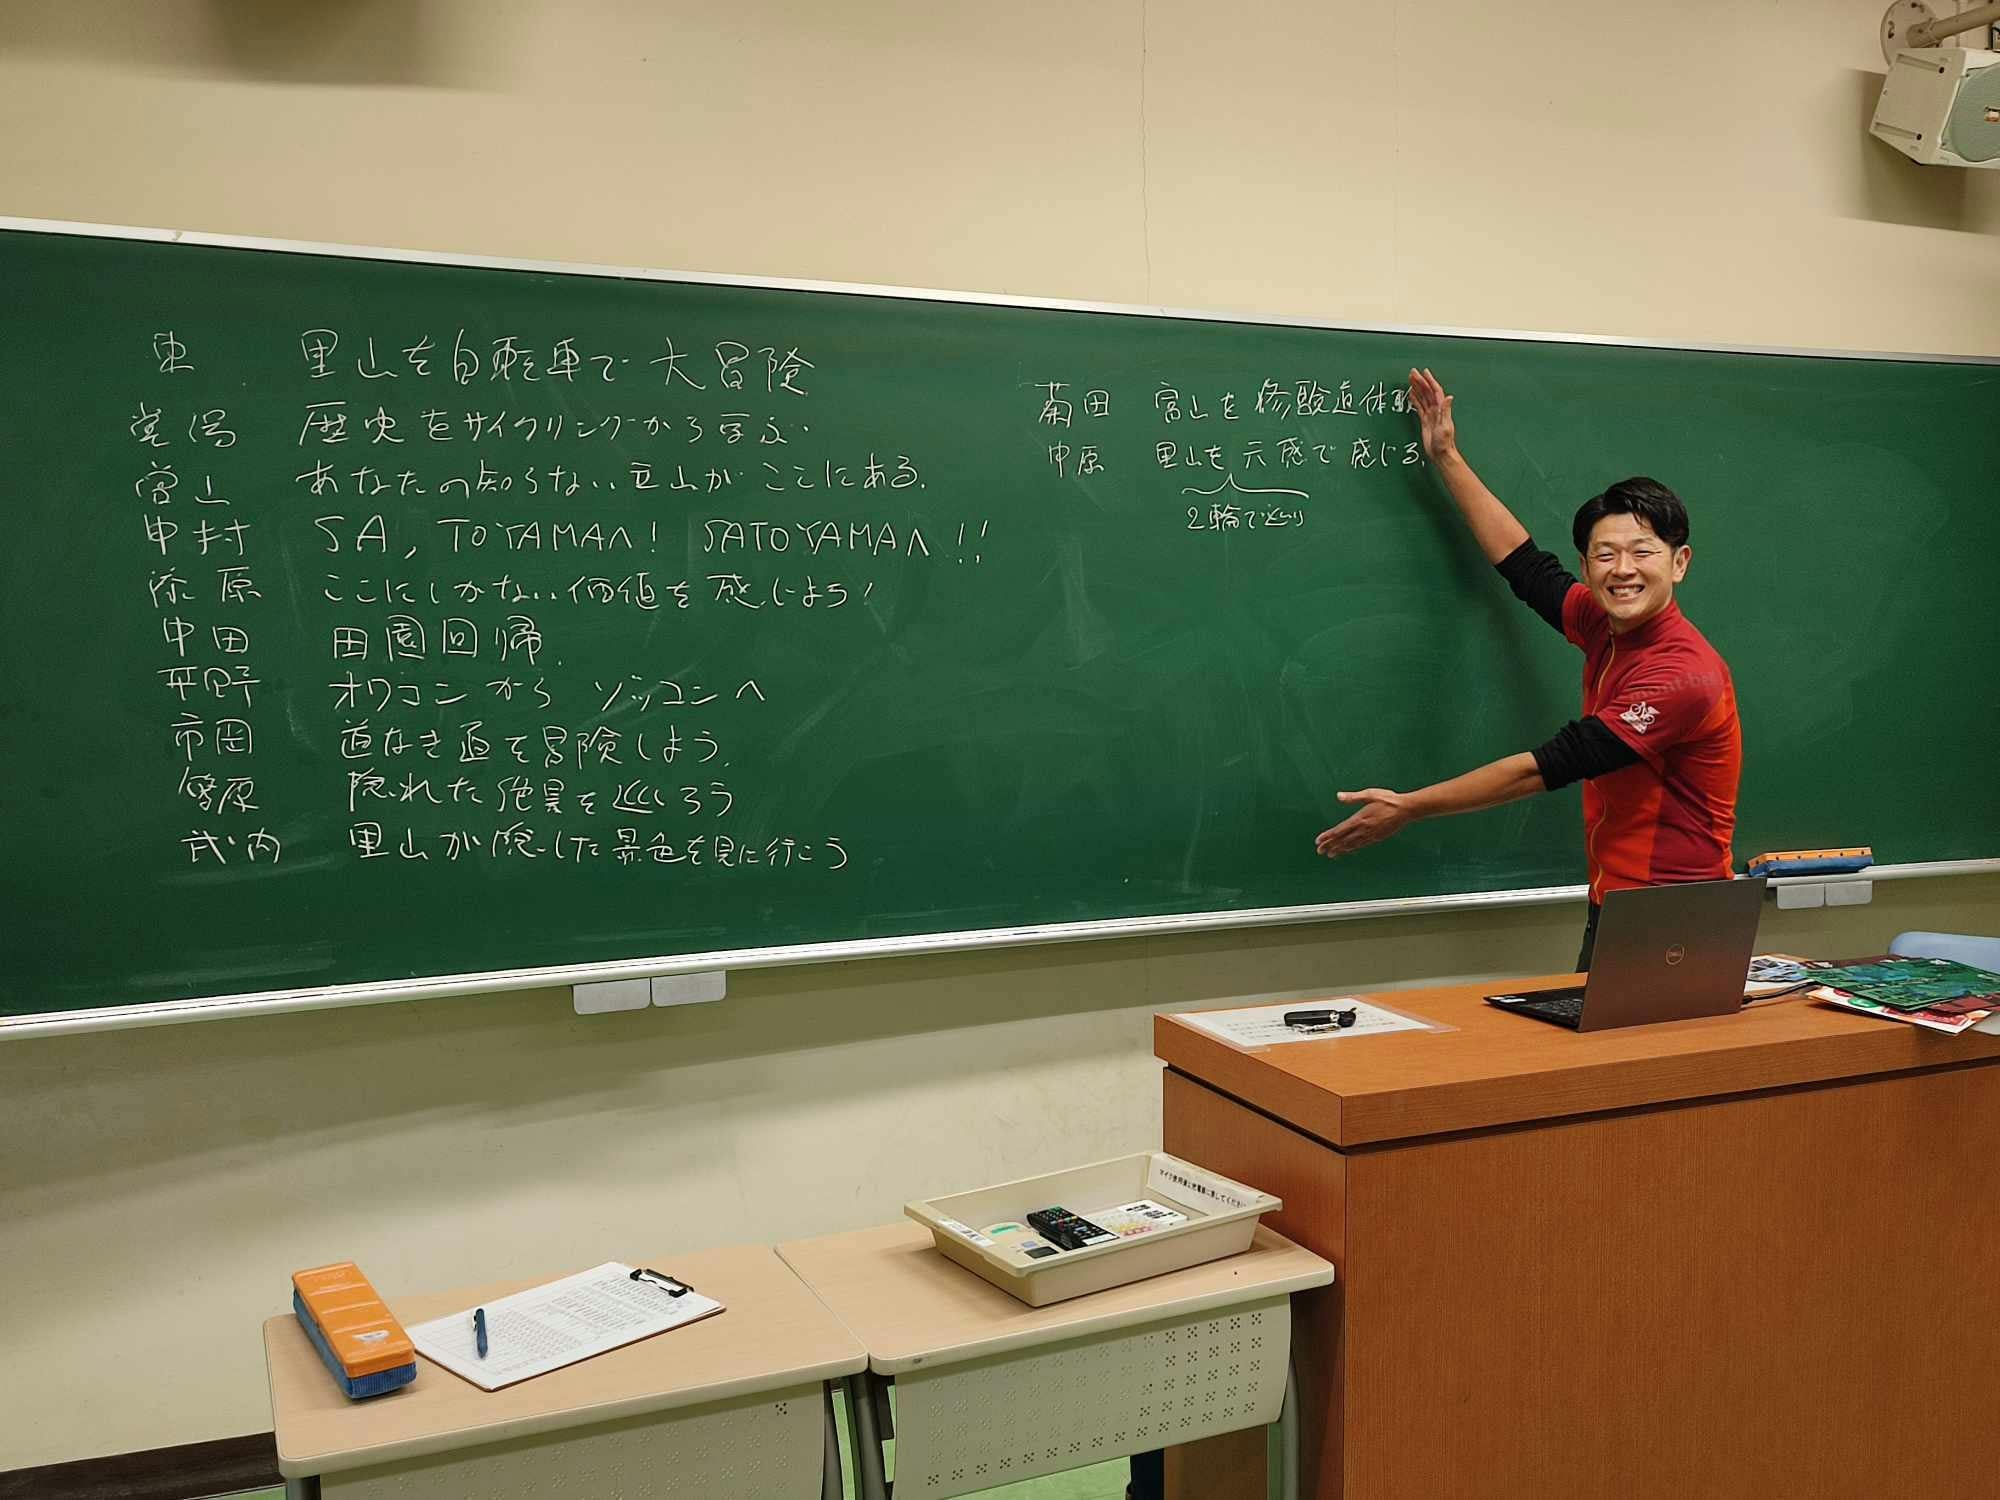 東 里山を自転車で大冒険
歴史をサイクリングから学ぶ
曽山 あなたの知らない立山がここにある.
中村 SA, TOYAMAへ! SATOYAMAへ!!
漆原 ここにしかない価値を感じよう!
中田 田園回帰.
平野 オワコンからゾッコンへ
市岡 道なき道を冒険しよう.
原 隠れた絶景を巡ろう
武内 里山が隠した景色を見に行こう
菊田 富山を修験道体験
中原 里山を六感で感じる.
2輪で巡り
mont-bell
DELL